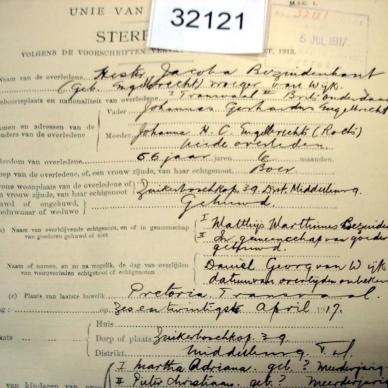 MAG. 1.
UNIE VAN
32121
STERF
6 JUL 1917
VOLGENS DE VOORSCHRIFTEN VERVAT 1913.
Naam van de overledene Hester Jacoba Bezuidenhout
(Geb. Engelbrecht) vroeger v. Wijk.
Geboorteplaats en nationaliteit van overledene Transvaal Brits onderdaan
Vader Johannes Gerhardus Engelbrecht
Namen en adressen van de
ouders van de overledene
Moeder Johanna H. C. Engelbrecht (Roets)
beide overleden.
Ouderdom van overledene 66 jaar 6 maanden.
Beroep van de overledene, of een vrouw zijnde, van haar echtgenoot Boer
Gewone woonplaats van de overledene of een vrouw zijnde, van haar echtgenoot Zuikerboschkop 39 Dist. Middelburg
Gehuwd of ongehuwd, weduwnaar of weduwe Gehuwd.
(a) Naam van overblijvende echtgenoot, en of in gemeenschap van goederen gehuwd of niet
I Matthijs Marthinus Bezuiden
II In gemeenschap van goederen
getrouwd.
Naam of namen, en zo na mogelik, de dag van overlijden van vooroverleden echtgenoot of echtgenoten
Daniel Georg van Wijk
datum van overlijden onbekend
(c) Plaats van laatste huwelik Pretoria Transvaal
op Zes en twintigste April 1917.
Huis
plaats Dorp of plaats Zuikerboschkop 39
Distrikt Middelburg Tvl
I Martha Adriana geb. ? Meerderjarig
van kinderen van II Pieter Christiaan geb. ? Meerderjarig